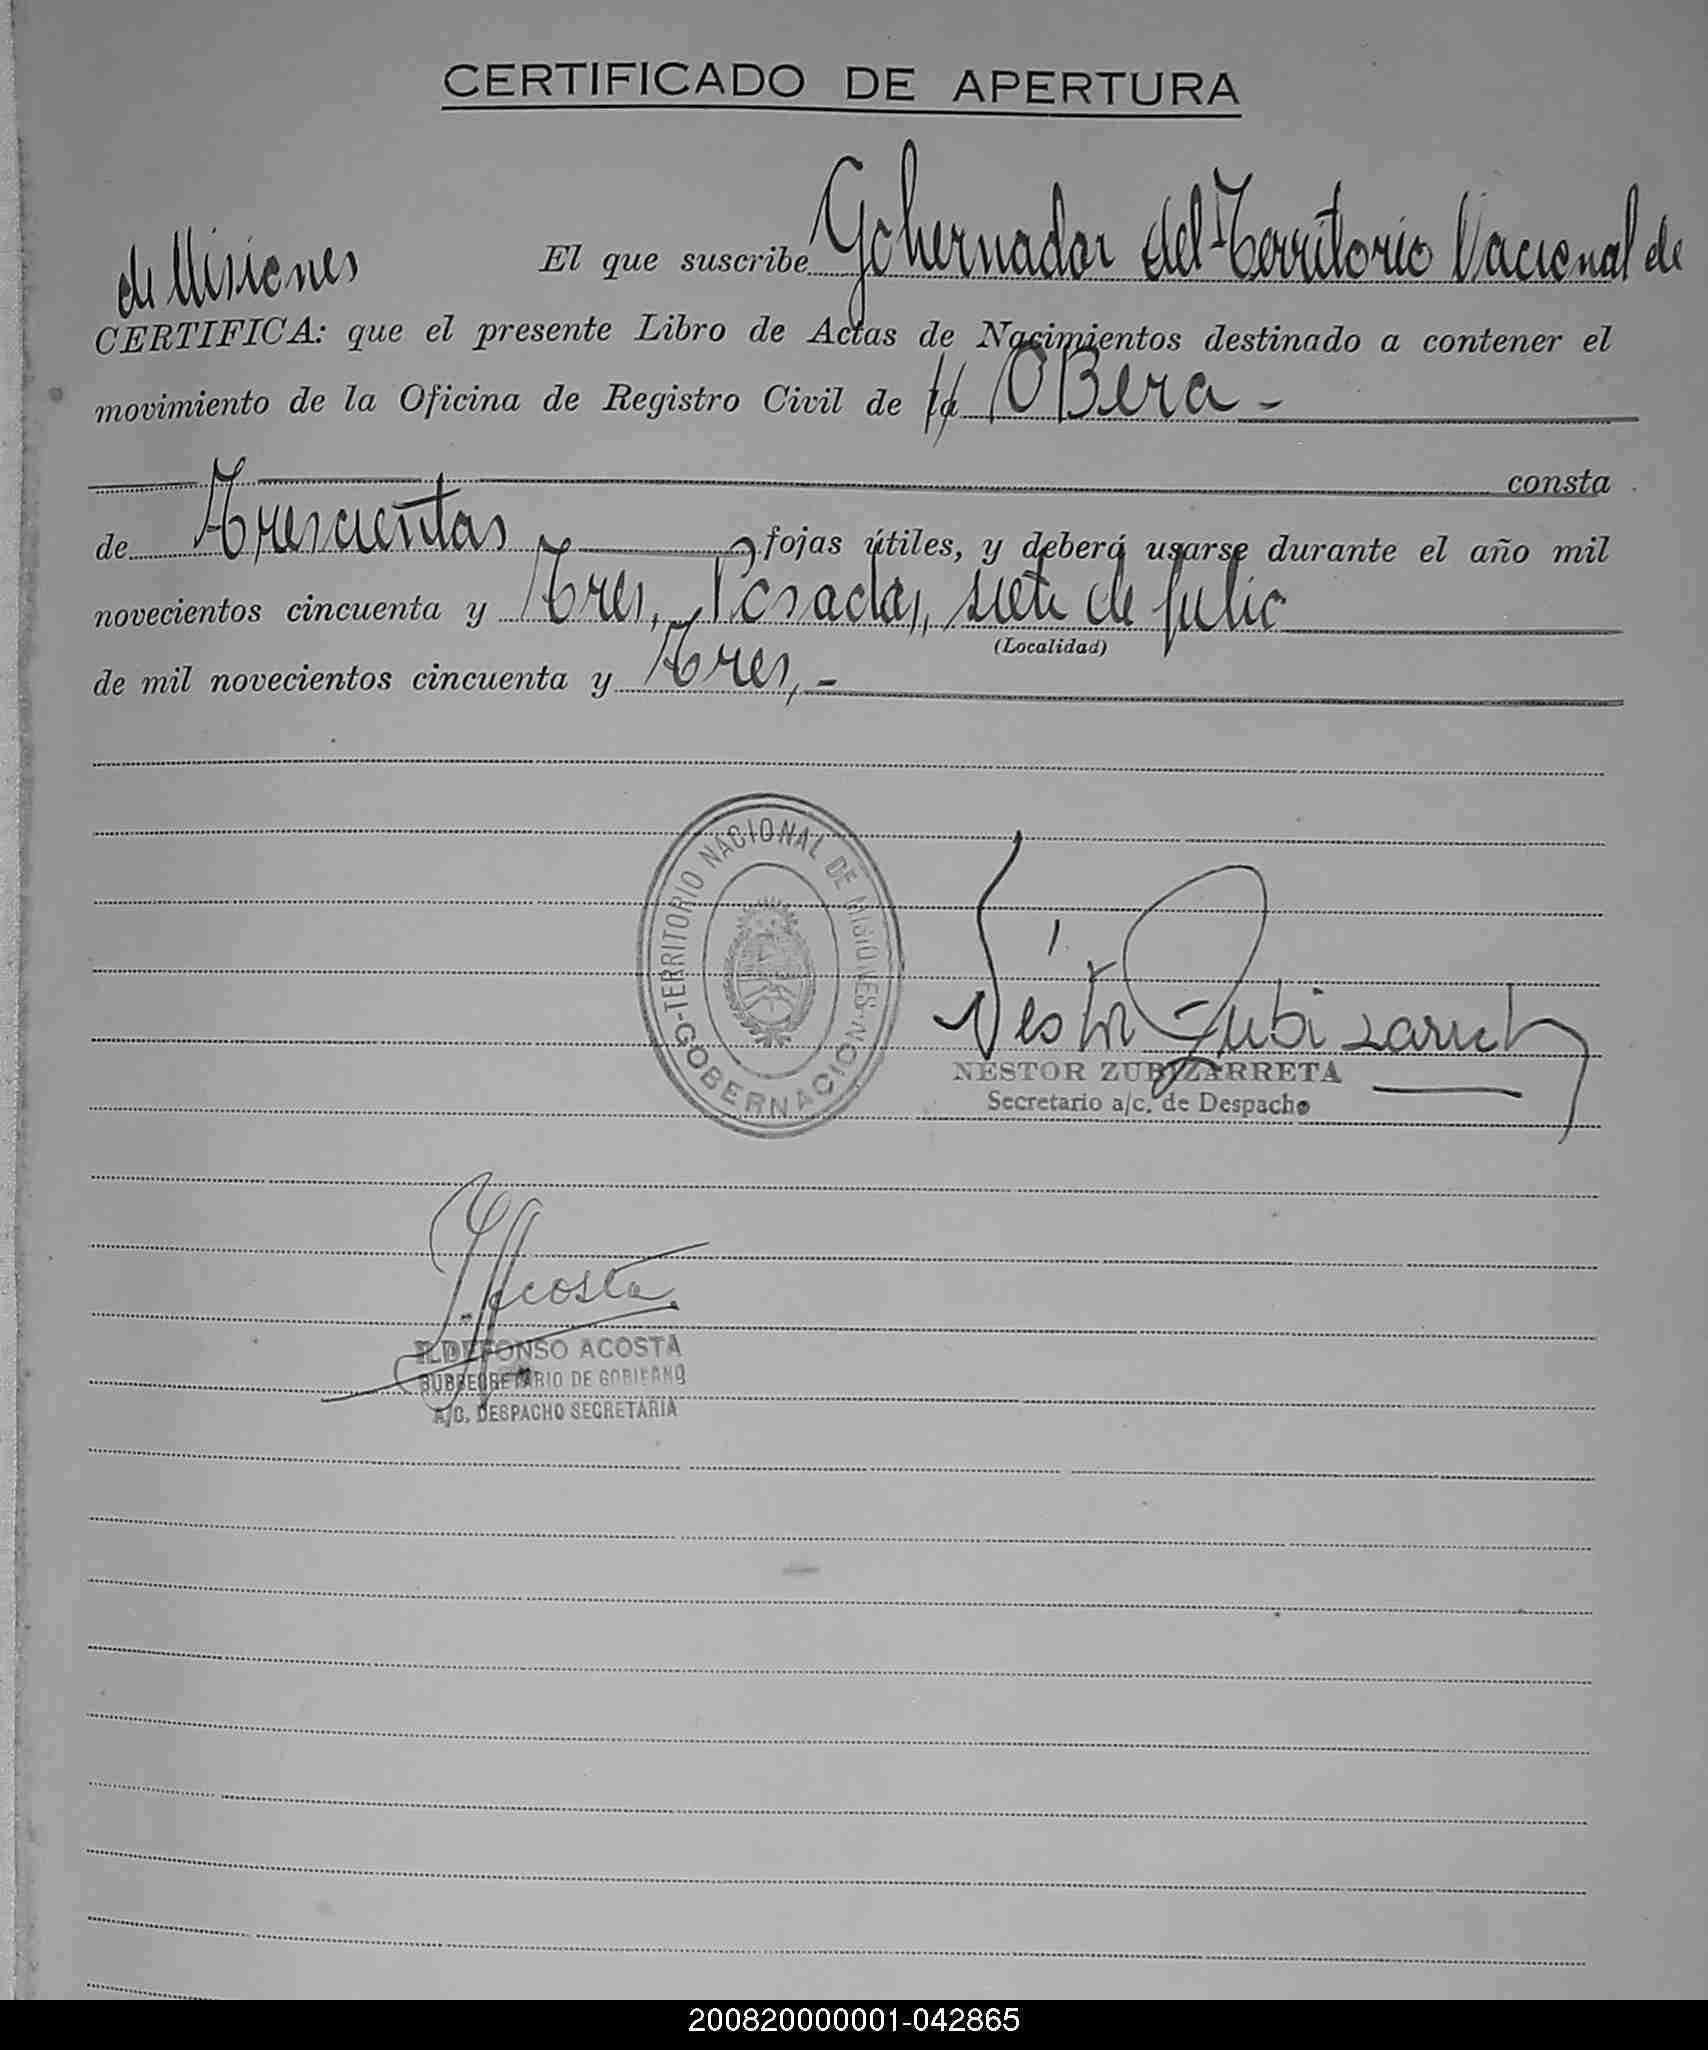 CERTIFICADO DE APERTURA
El que suscribe Gobernador del Territorio Nacional de
de Misiones
CERTIFICA: que el presente Libro de Actas de Nacimientos destinado a contener el
movimiento de la Oficina de Registro Civil de OBera -
consta
de Trescientas fojas útiles, y deberá usarse durante el año mil
novecientos cincuenta y Tres, Posadas, siete de julio
(Localidad)
de mil novecientos cincuenta y Tres,-
TERRITORIO NACIONAL DE MISIONES
GOBERNACION
Néstor Zubizarreta
NESTOR ZUBIZARRETA
Secretario a/c. de Despacho
I. Acosta
ILDEFONSO ACOSTA
SUBSECRETARIO DE GOBIERNO
A/C. DESPACHO SECRETARIA
200820000001-042865